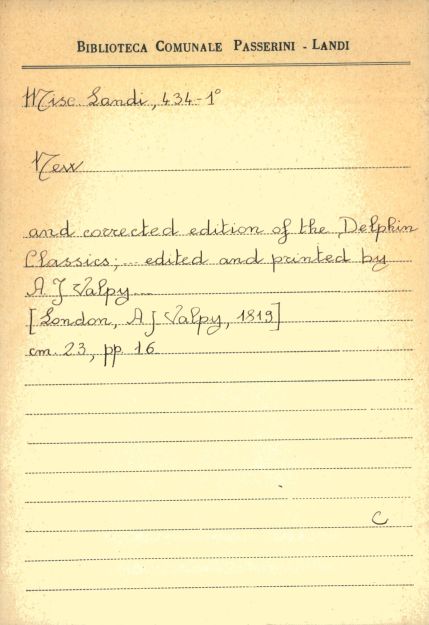 BIBLIOTECA COMUNALE PASSERINI - LANDI
Misc. Landi, 434-1°
New
and corrected edition of the Delphin
Classics; ... edited and printed by
A J Valpy ...
[London, A J Valpy, 1819]
cm. 23, pp. 16
C